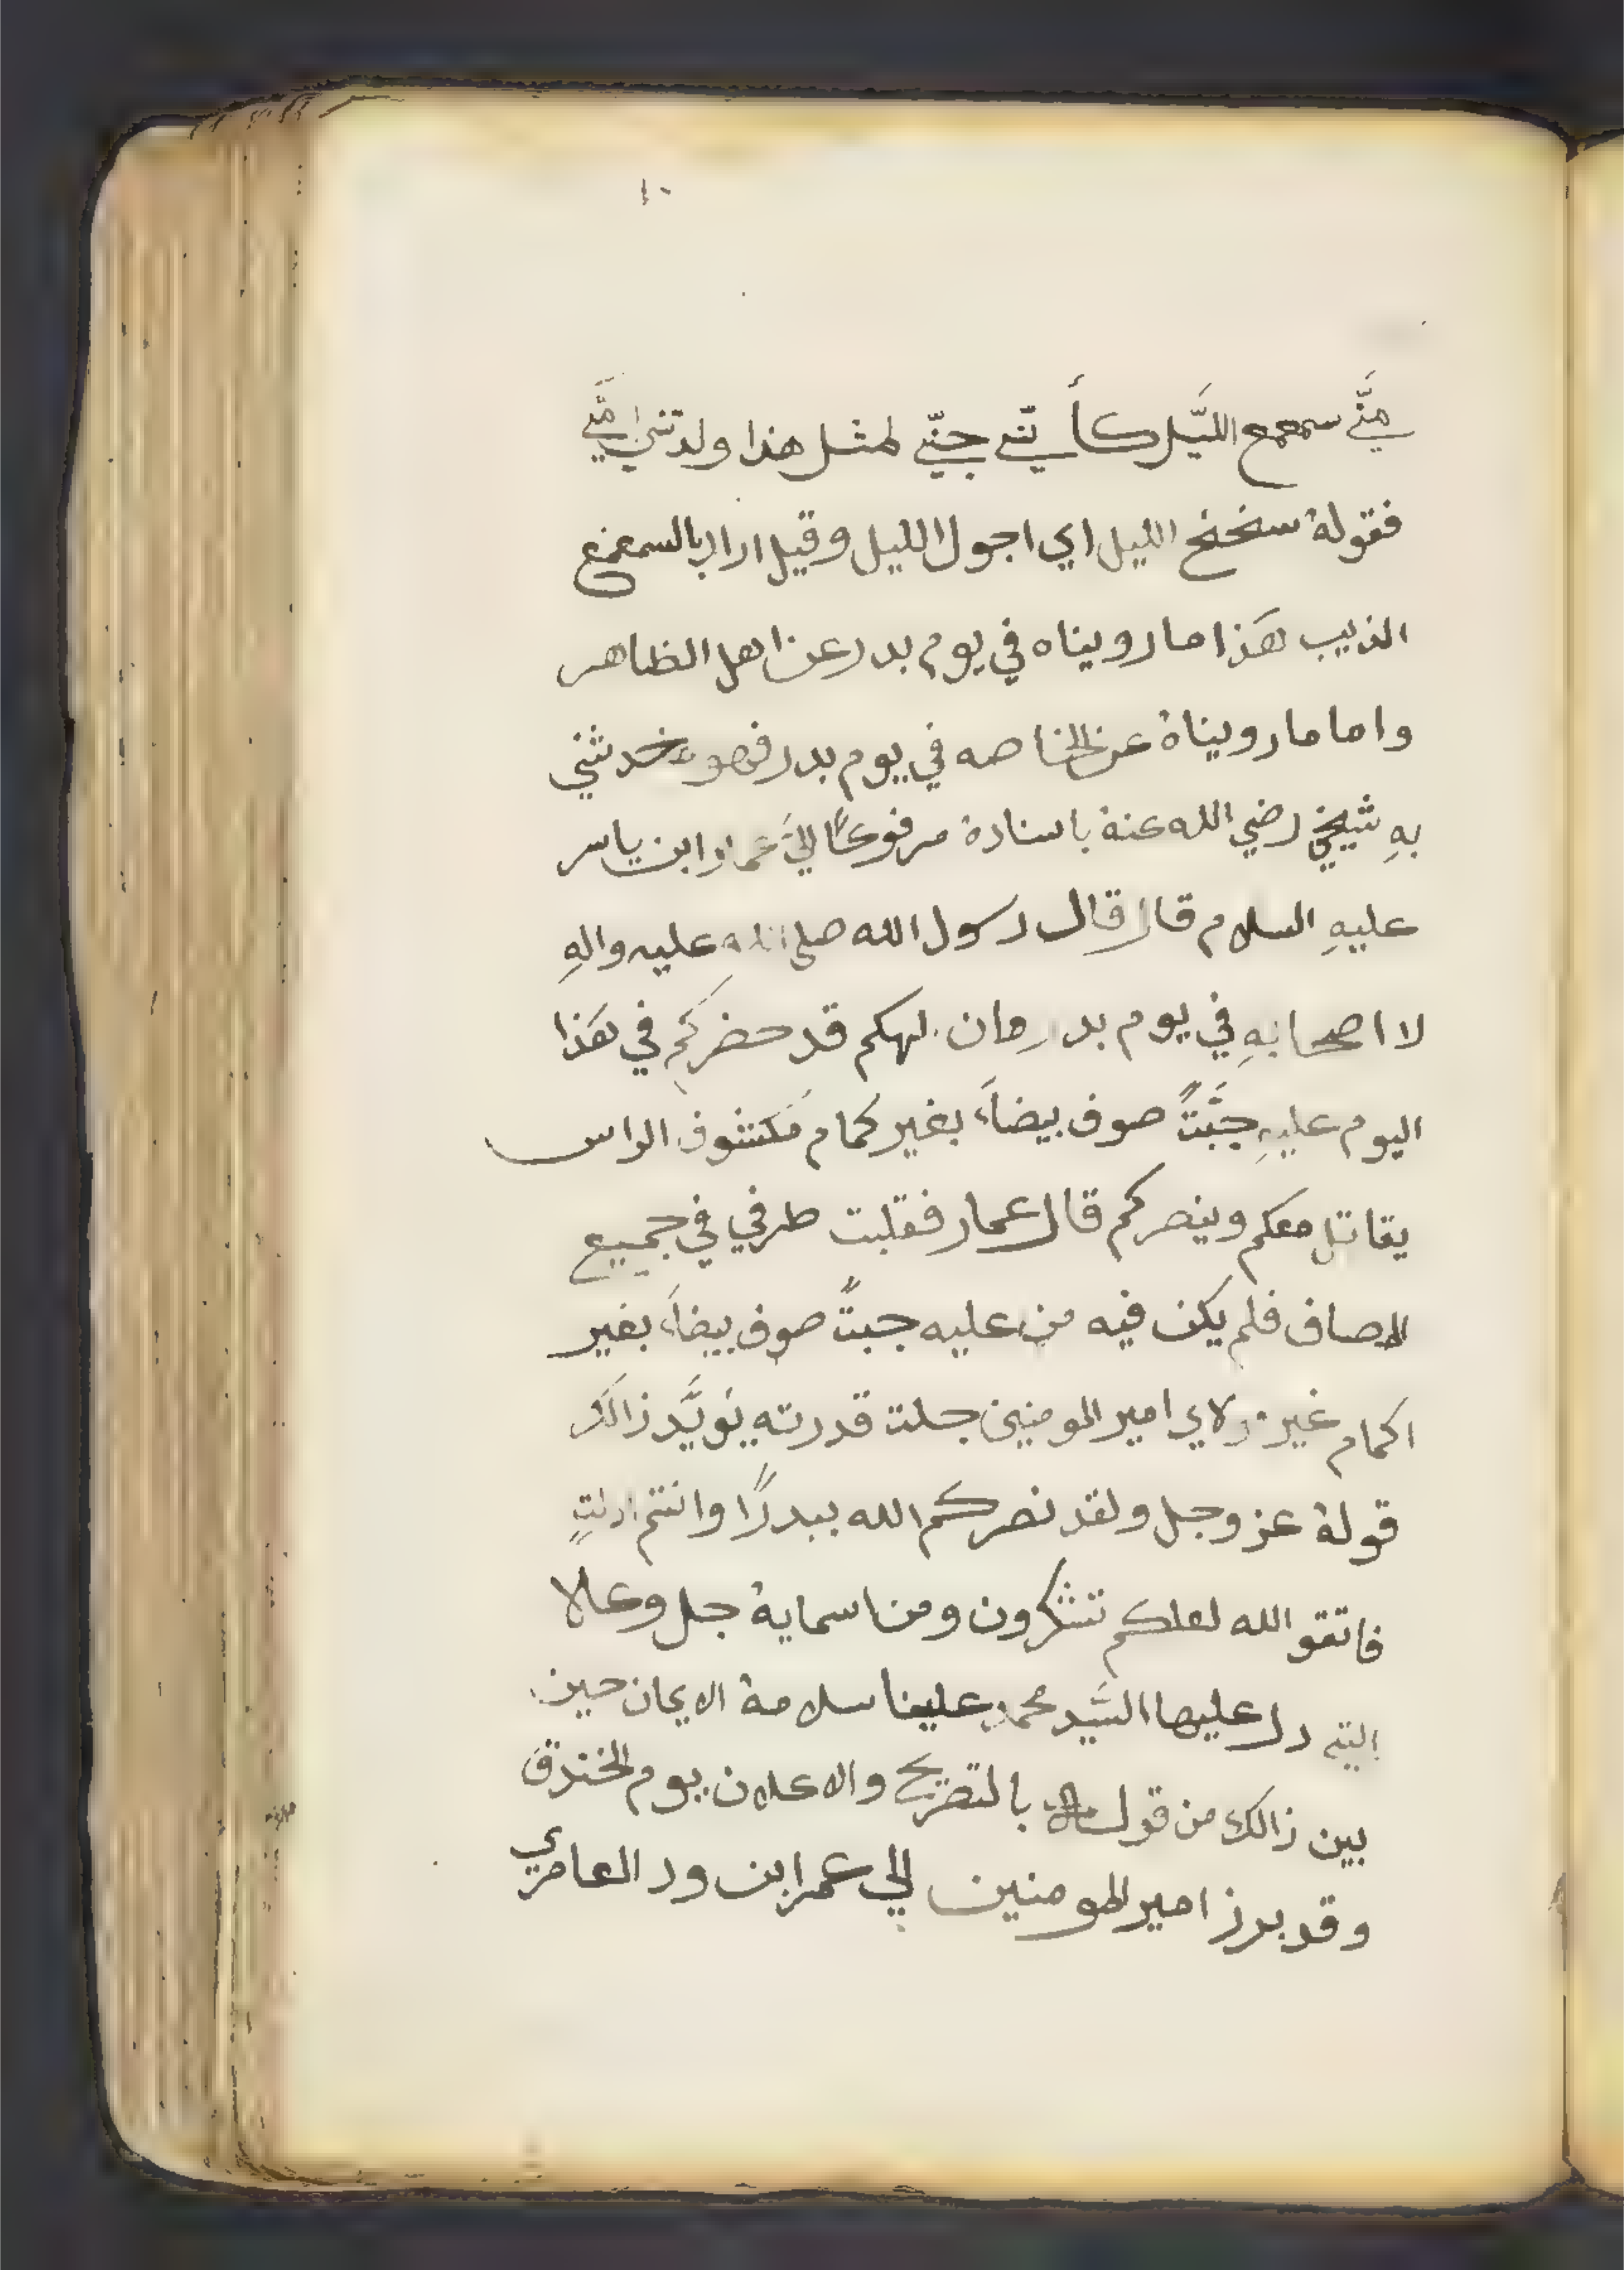 ١٠
منّي سمعمع اللَّيل كأنني جنّي لمثل هذا ولدتني امّي
فقولة سنحنح الليل اي اجول الليل وقيل اراد بالسمعمع
الذيب هَذا ما رويناه في يوم بدر عن اهل الظاهر
واما ما رويناة عن الخاصه في يوم بدر فهو حدثني
بهِ شيخي رضي الله عنة باسنادة مرفوعًا اليَّ عمار ابن ياسر
عليهِ السلام قال قال رسول الله صلى الله عليه والهِ
لا اصحابهِ في يوم بدر مان الهكم قد حضركُم في هَذا
اليوم عليهِ جبَّتً صوف بيضاَء بغير كمام مَكشوف الراس
يقاتل معكم وينصركم قال عمار فقلبت طرفي في جميع
المصاف فلم يكن فيه من عليه جبتً صوف بيضاَء بغير
اكمام غير مولاي امير المومنين جلت قدرته يَويَّد ذالكَ
قولة عز وجل ولقد نصركم الله ببدرًا وانتم اذلتٍ
فاتقو الله لعلكم تشكرون ومن اسماية جل وعلا
التي دل عليها السَّيد محمد علينا سلامة الايمان حين
بين ذالك من قول بالتصريح والاعلان يوم الخندق
وقد برز امير المومنين الي عمر ابن ود العامري